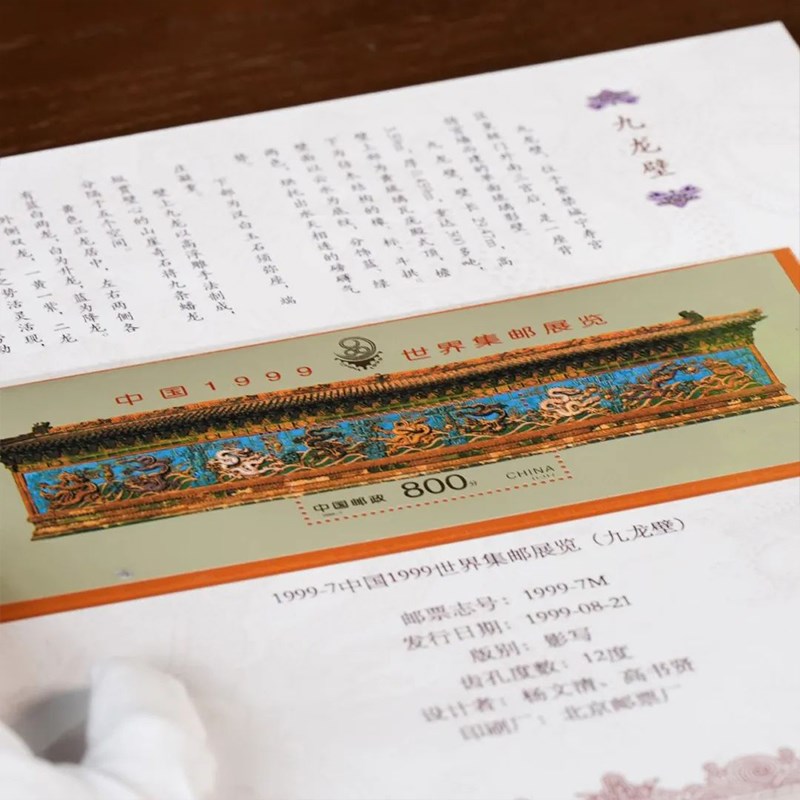 九龙壁
九龙壁，位于紫禁城宁寿宫
区皇极门外南三宫后，是一座背
倚宫墙而建的单面琉璃影壁。
九龙壁，壁长29.4m，高
壁上部为黄琉璃瓦庑殿式顶，檐
下为仿木结构的椽、檩、斗拱。
壁面以云水为底纹，分饰蓝、绿
两色，烘托出水天相连的磅礴气
势。
下部为汉白玉石须弥座，端
庄凝重。
壁上九龙以高浮雕手法制成，
纵贯壁心的山崖奇石将九条蟠龙
分隔于五个空间。
黄色正龙居中，左右两侧各
有蓝白两龙，白为升龙，蓝为降龙。
外侧双龙，一黄一紫，二龙
之势活灵活现，
中国1999 世界集邮展览
中国邮政 800分 CHINA
1999-7中国1999世界集邮展览（九龙壁）
邮票志号：1999-7M
发行日期：1999-08-21
版别：影写
齿孔度数：12度
设计者：杨文清、高书贤
印刷厂：北京邮票厂